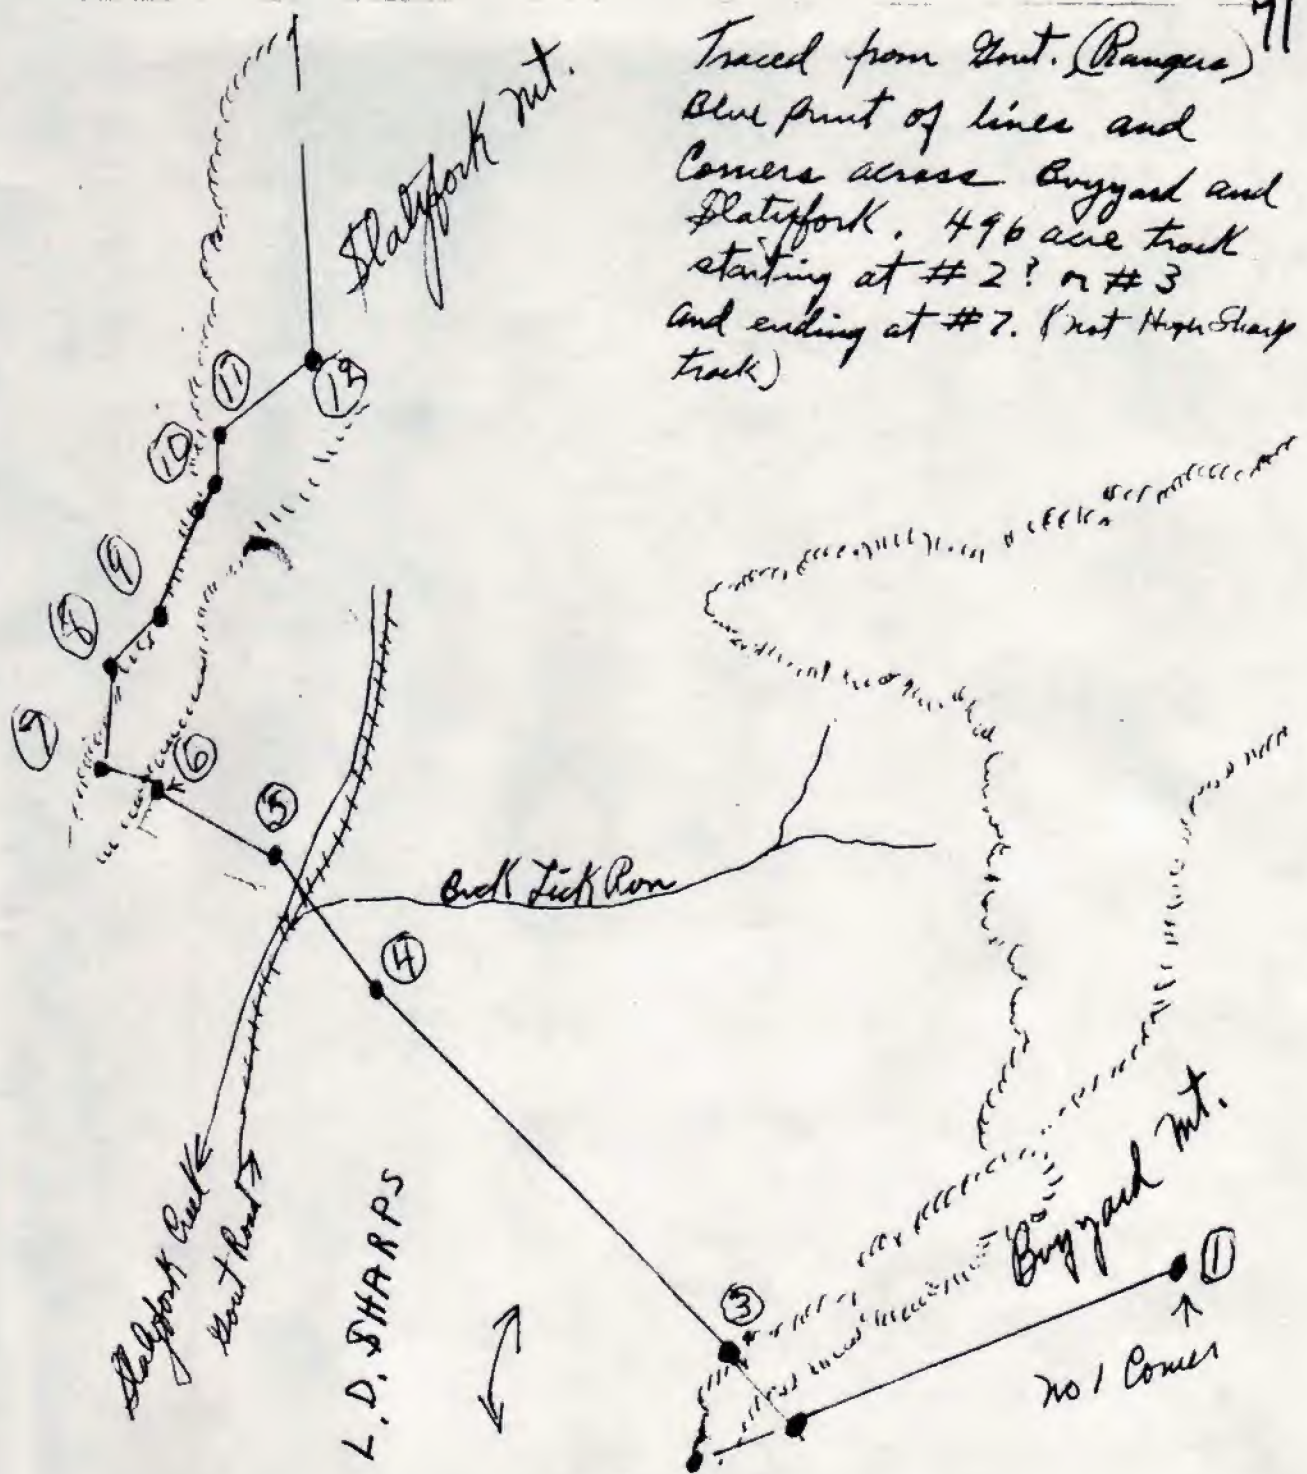 71
Traced from Gout. (Rangers)
Blue print of lines and
Corners across Buzzard and
Slatyfork. 496 acre track
starting at # 2? or # 3
and ending at #7. (not Hugh Sharp
track)
Slatyfork Mt.
12
11
10
9
8
7
6
5
Buck Lick Run
4
Slatyfork Creek
Gout Road
L. D. SHARPS
3
Buzzard Mt.
1
No 1 Corner